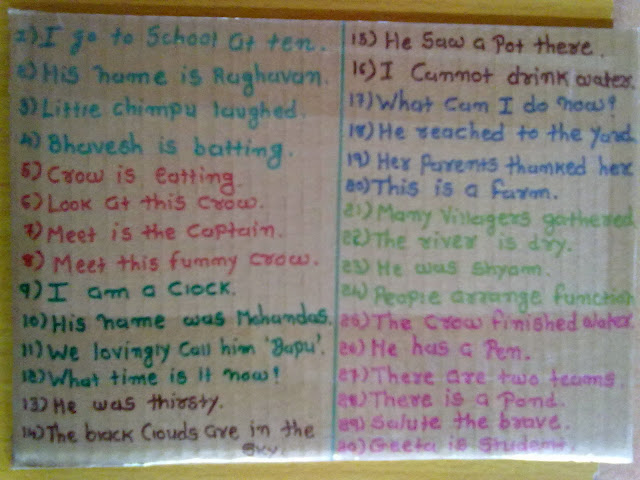 1) I go to School at ten.
2) His name is Raghavan.
3) Little chimpu laughed.
4) Bhavesh is batting.
5) Crow is eatting.
6) Look at this crow.
7) Meet is the Captain.
8) Meet this fummy crow.
9) I am a Clock.
10) His name was Mohandas.
11) We lovingly Call him 'Bapu'.
12) What time is it now!
13) He was thirsty.
14) The black Clouds are in the
Sky.
15) He Saw a Pot there.
16) I Cannot drink water.
17) What Can I do now?
18) He reached to the Yard.
19) Her Parents thanked her
20) This is a farm.
21) Many Villagers gathered
22) The river is dry.
23) He was Shyam.
24) People arrange function
25) The Crow finished water.
26) He has a Pen.
27) There are two teams.
28) There is a Pond.
29) Salute the brave.
30) Geeta is Student.